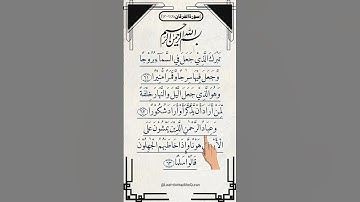 سورة الفرقان
بِسْمِ اللَّهِ الرَّحْمَٰنِ الرَّحِيمِ
تَبَٰرَكَ الَّذِي جَعَلَ فِي السَّمَآءِ بُرُوجًا
وَّجَعَلَ فِيهَا سِرَٰجًا وَّقَمَرًا مُّنِيرًا ﴿٦١﴾
وَهُوَ الَّذِي جَعَلَ الَّيْلَ وَالنَّهَارَ خِلْفَةً
لِّمَنْ أَرَادَ أَنْ يَّذَّكَّرَ أَوْ أَرَادَ شُكُورًا ﴿٦٢﴾
وَعِبَادُ الرَّحْمَٰنِ الَّذِينَ يَمْشُونَ عَلَى
هَوْنًا وَّإِذَا خَاطَبَهُمُ الْجَٰهِلُونَ
قَالُوا سَلَٰمًا ﴿٦٣﴾
@LearntoreadtheQuran